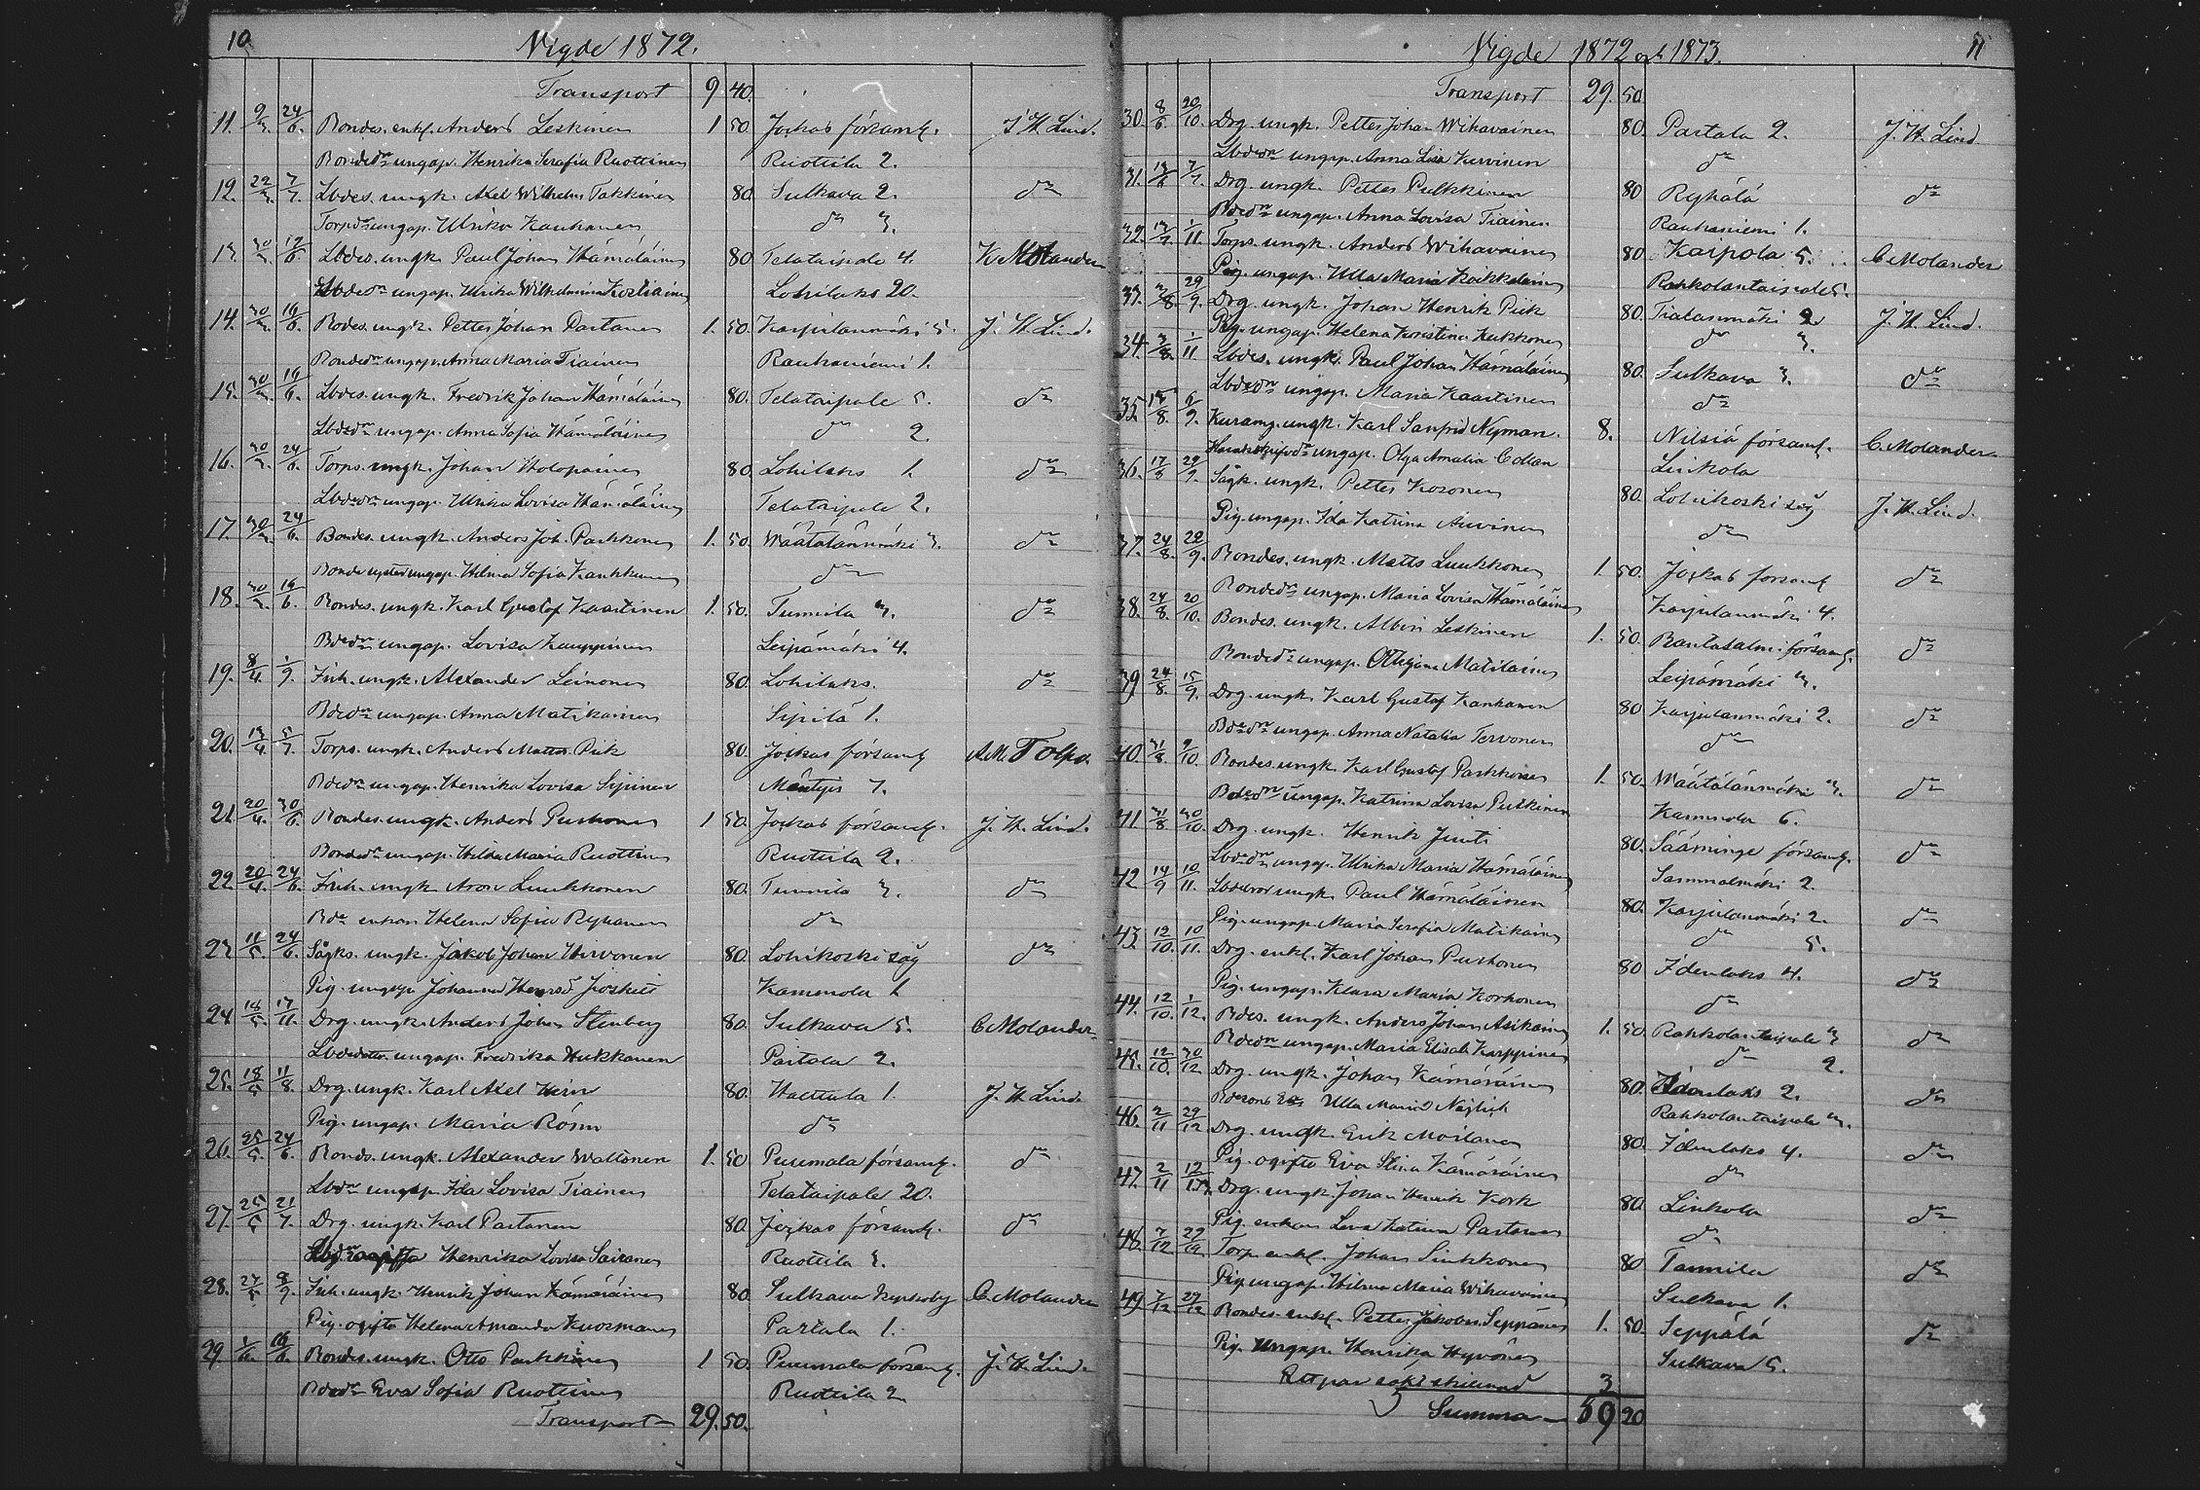 10
Vigde 1872.
Transport 9 40.
11. 9/3. 24/6. Bondes. enkl. Anders Leskinen 1 50 Jockas församl. J. H. Lind.
Bondedr ungap. Henrika Serafia Ruottinen Ruottila 2.
12. 22/3. 7/7. Lbdes. ungk. Axel Wilhelm Takkinen 80 Sulkava 2. do
Torpdr ungap. Ulrika Kauhanen do 3.
13. 30/3. 19/6 Lbdes. ungk. Paul Johan Hämäläinen 80 Telataipale 4. K. Molander
Lbdedr ungap. Ulrika Wilhelmina Kostiainen Lohilaks 20.
14. 30/3. 16/6. Bodes. ungk. Petter Johan Partanen 1. 50. Karjulanmäki 5. J. H. Lind.
Bondedr ungap. Anna Maria Tiainen Rauhaniemi 1.
15. 30/3. 16/6. Lbdes. ungk. Fredrik Johan Hämäläinen 80. Telataipale 5. do
Lbdedr ungap. Anna Sofia Hämäläinen do 2.
16. 30/3. 24/6. Torps. ungk. Johan Holopainen 80 Lohilaks 1. do
Lbdedr ungap. Ulrika Lovisa Hämäläinen Telataipale 2.
17. 30/3. 24/6. Bondes. ungk. Anders Joh. Parkkonen 1. 50. Wäätälänmäki 3. do
Bonde syster ungap. Hilma Sofia Kankkunen do
18. 30/3. 16/6. Bondes. ungk. Karl Gustof Kaartinen 1. 50. Tunnila 3. do
Bdedr ungap. Lovisa Kauppinen Leipämäki 4.
19. 8/4. 1/9. Inh. ungk. Alexander Leinonen 80. Lohilaks. do
Bdedr ungap. Anna Matikainen Sipilä 1.
20. 13/4. 5/7. Torps. ungk. Anders Matts. Piik 80. Jockas församl A. M. Tolpo.
Bdedr ungap. Henrika Lovisa Sipinen Mäntyis 7.
21. 20/4. 30/6. Bondes. ungk. Anders Purhonen 1 50. Jockas församl. J. H. Lind.
Bondedr ungap. Hilda Maria Ruottinen Ruottila 2.
22. 20/4. 24/6. Inh. ungk. Aron Luukkonen 80. Tunnila 3. do
Bde enkan Helena Sofia Rypanen do
23. 11/5. 24/6. Sågks. ungk. Jakob Johan Hirvonen 80. Lohikoski såg do
Pig. ungap. Johanna Kammola 1
24. 14/5. 17/11. Drg. ungk. Anders Johan Stenberg 80. Sulkava 5. C. Molander
Lbdedotter. ungap. Fredrika Hukkanen Partala 2.
25. 18/5. 11/8. Drg. ungk. Karl Axel Hirn 80. Halttula 1. J. H. Lind.
Pig. ungap. Maria Rösin do
26. 25/5. 24/6. Bonds. ungk. Alexander Waltonen 1. 50 Puumala församl. do
Lbdr ungap. Ida Lovisa Tiainen Telataipale 20.
27. 25/5 21/7. Drg. ungk. Karl Partanen 80. Jockas församl. do
Henrika Lovisa Sairanen Ruottila 3.
28. 27/5 8/9. Inh. ungk. Henrik Johan Kämäräinen 80. Sulkava kyrkoby C. Molander
Pig. ogifta Helena Amanda Kuosmanen Partala 1.
29. 1/6. 16/6. Bondes. ungk. Otto Parkkinen 1 50. Puumala församl. J. H. Lind.
Bdedr Eva Sofia Ruottinen Ruottila 2
Transport 29. 50.
Vigde 1872 och 1873. 11
Transport 29. 50
30. 8/6 20/10. Drg. ungk. Petter Johan Wihavainen 80. Partala 2. J. H. Lind.
Lbdedr ungap. Anna Lisa Kurvinen do
31. 13/6 7/7. Drg. ungk. Petter Pulkkinen 80 Ryhälä do
Bdedr ungap. Anna Lovisa Tiainen. Rauhaniemi 1.
32. 13/7. 1/11. Torps. ungk. Anders Wihavainen 80 Kaipola 5. C. Molander
Pig. ungap. Ulla Maria Koikkalainen Rahkolantaipale 5.
33. 3/8. 29/9. Drg. ungk. Johan Henrik Piik 80. Tiatanmäki 2. J. H. Lind.
Pig. ungap. Helena Kristina Kukkonen do 3.
34. 3/8. 1/11 Lbdes. ungk. Paul Johan Hämäläinen 80. Sulkava 3. do
Lbdedr ungap. Maria Kaartinen do
35. 15/8. 5/9. ungk. Karl Sanfrid Nyman. 8. Nilsiä församl. C. Molander
ungap. Olga Amalia Collan Linkola
36. 17/8 29/9. Sågk. ungk. Petter Kosonen 80. Lohikoski såg J. H. Lind.
Pig. ungap. Ida Katrina Auvinen do
37. 24/8. 22/9. Bondes. ungk. Matts Luukkonen 1. 50. Jockas församl do
Bondedr ungap. Maria Lovisa Hämäläinen Karjulanmäki 4.
38. 24/8. 20/10. Bondes. ungk. Albin Leskinen 1. 50. Rantasalmi församl. do
Bondedr ungap. Ottiljana Matilainen Leipämäki 3.
39 24/8. 15/9. Drg. ungk. Karl Gustof Kankanen 80 Karjulanmäki 2. do
Bdedr ungap. Anna Natalia Tervonen do
40. 31/8. 9/10. Bondes. ungk. Karl Gustof Parkkonen 1. 50. Wäätälänmäki 3. do
Bdedr ungap. Katrina Lovisa Pulkkinen Kammola 6.
41. 31/8 30/10. Drg. ungk. Henrik Juuti 80. Sääminge församl. do
Lbdedr ungap. Ulrika Maria Hämäläinen Sammalmäki 2.
42 14/9 10/11. ungk. Paul Hämäläinen 80. Karjulanmäki 2. do
Pig. ungap. Maria Serafia Matikainen do 5.
43. 12/10. 10/11. Drg. enkl. Karl Johan Purhonen 80 Idenlaks 4. do
Pig. ungap. Klara Maria Korhonen do
44. 12/10. 1/12. Bdes. ungk. Anders Johan Asikainen 1. 50. Rahkolantaipale 3 do
Bdedr ungap. Maria Elisab. Karppinen do 2.
45. 12/10. 30/12 Drg. ungk. Johan Kämäräinen 80. Idenlaks 2. do
Ulla Maria Rahkolantaipale 3.
46. 2/11 29/12 Drg. ungk. Erik Moilanen 80. Idenlaks 4. do
Pig. ogifta Eva Stina Kämäräinen do
47. 2/11 12/1 Drg. ungk. Johan Henrik Kork 80 Linkola do
Pig. enkan Lena Katrina Partanen do
48. 7/12 29/12 Torp. enkl. Johan Sinkkonen 80 Tannila do
Pig. ungap. Hilma Maria Wihavainen Sulkava 1.
49. 7/12 27/12 Bondes. enkl. Petter Jakobss. Seppänen 1. 50. Seppälä do
Pig. ungap. Henrika Hyvönen Sulkava 5.
Ett par 3
Summa 59 20